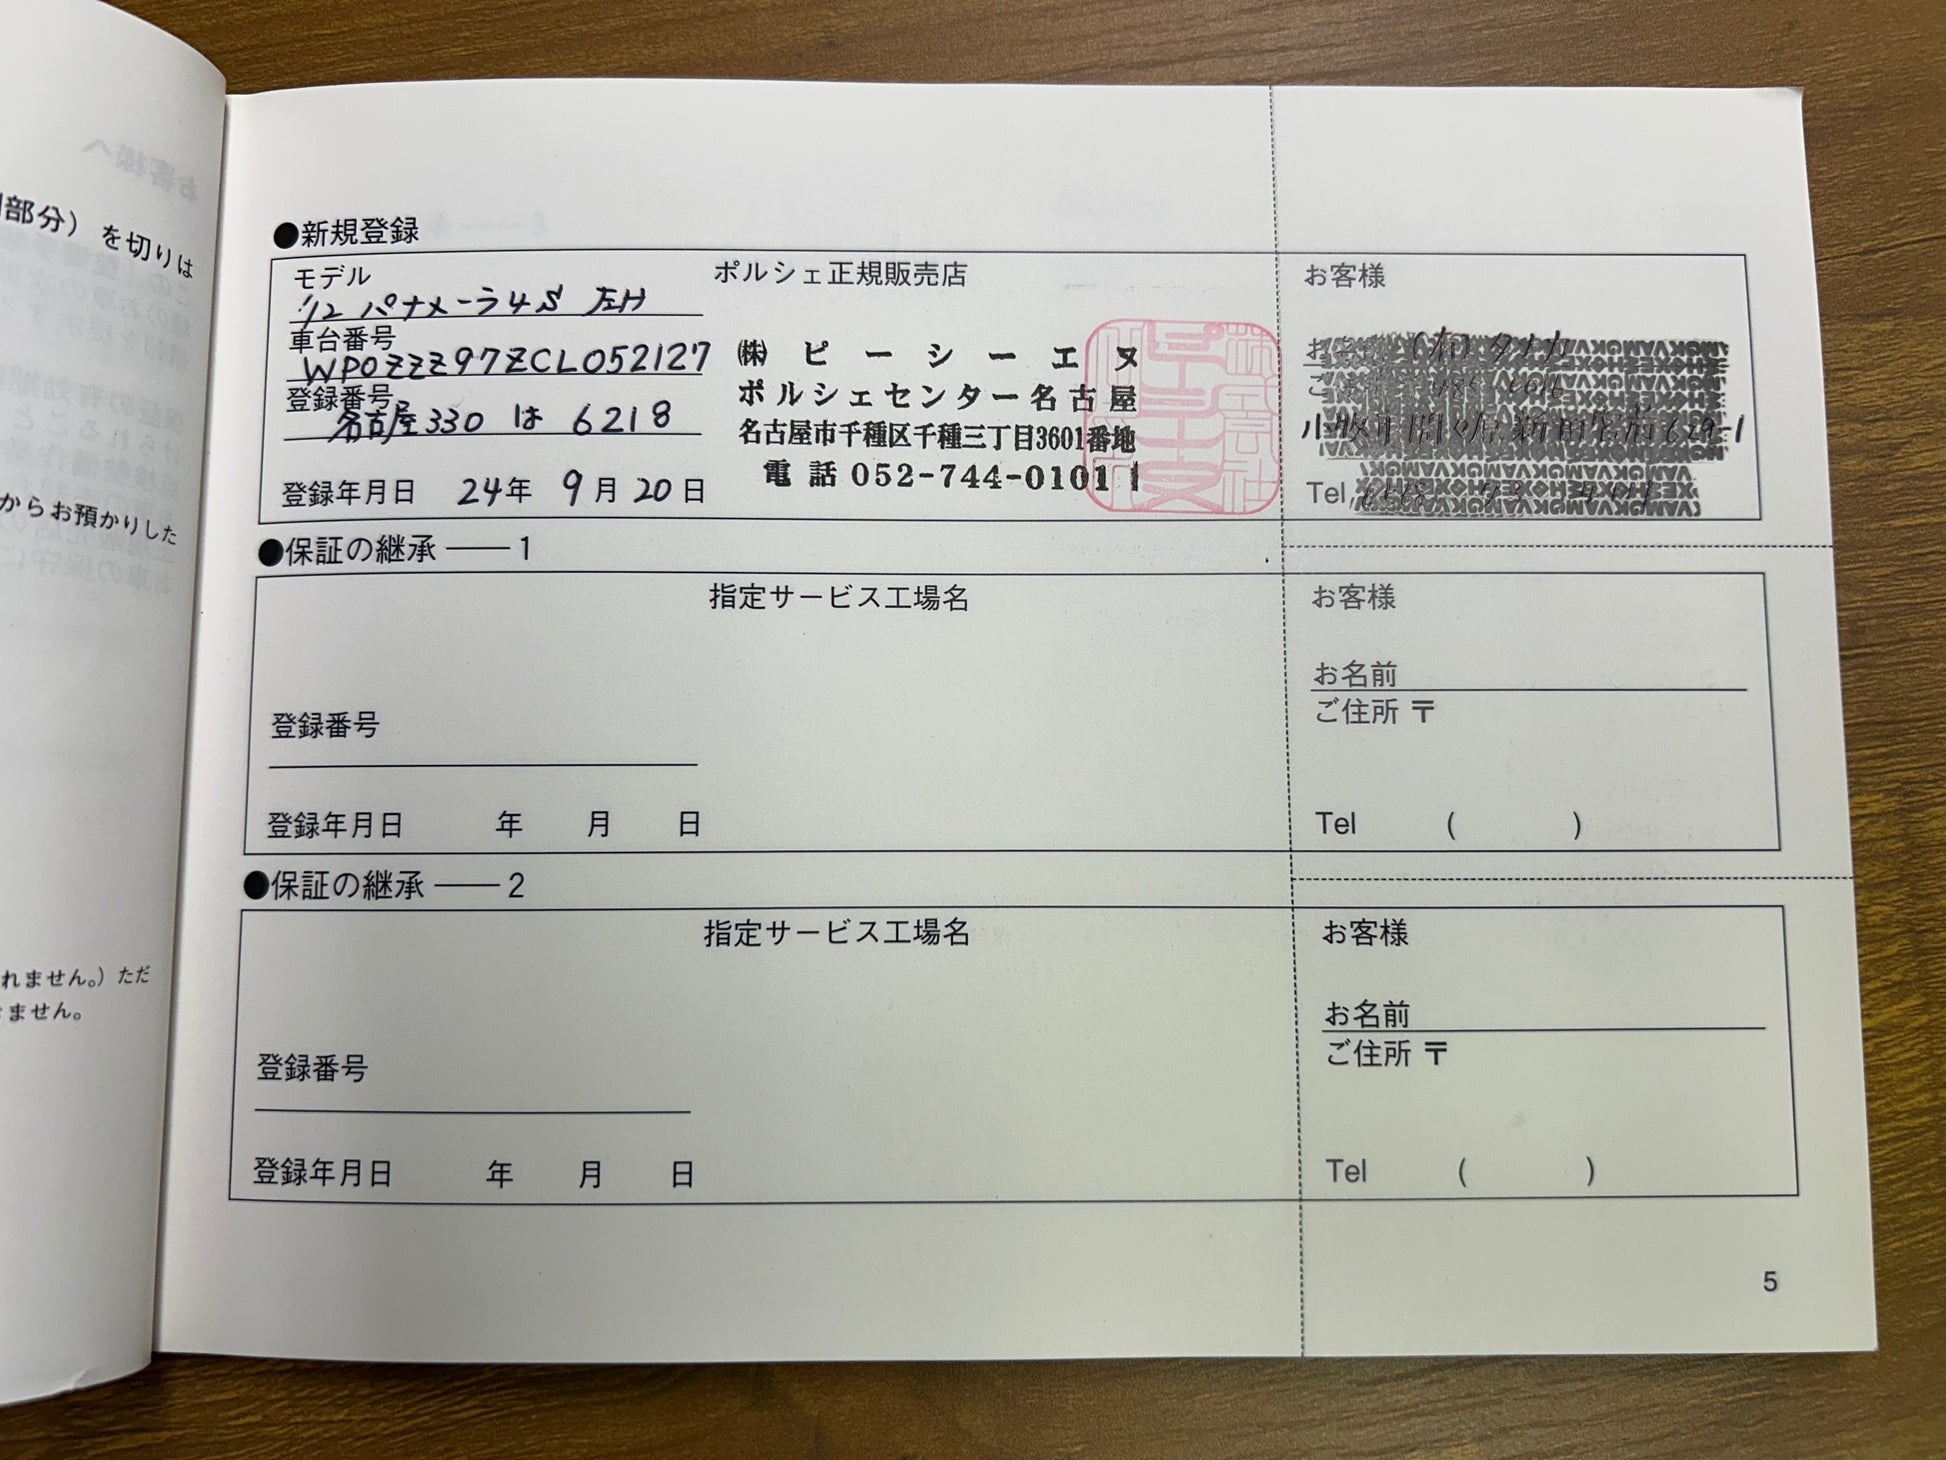 部分）を切りは
からお預かりした
れません。）ただ
ません。
●新規登録
モデル
'12 パナメーラ4S 左H
車台番号
WP0ZZZ97ZCL052127
登録番号
名古屋330 は 6218
登録年月日 24年 9月20日
ポルシェ正規販売店
㈱ピーシーエヌ
ポルシェセンター名古屋
名古屋市千種区千種三丁目3601番地
電話052-744-0101
お客様
Tel
●保証の継承 —— 1
指定サービス工場名
登録番号
登録年月日 年 月 日
お客様
お名前
ご住所 〒
Tel ( )
●保証の継承 —— 2
指定サービス工場名
登録番号
登録年月日 年 月 日
お客様
お名前
ご住所 〒
Tel ( )
5